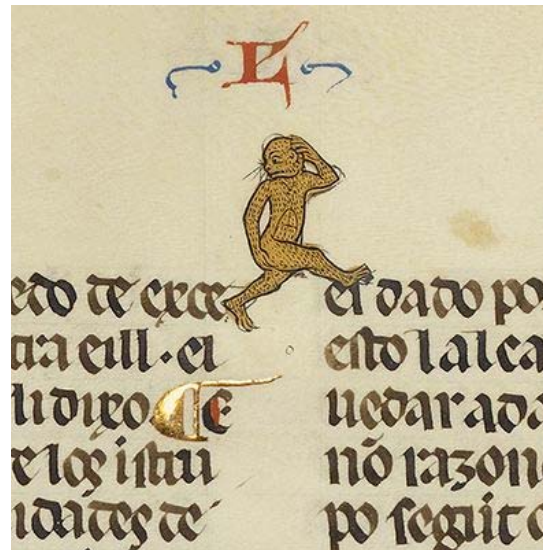 L
edo de exce
tra eill · el
li dixo ¶ E
e los istru
idades de
el dado po
esto lalca
uedar ada
nõ razon
po seguit